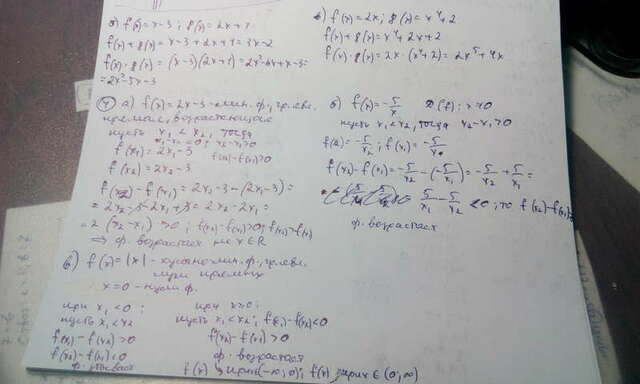 f(x)=x-3; g(x)=2x+1
f(x)+g(x)=x-3+2x+1=3x-2
f(x)·g(x)=(x-3)(2x+1)=2x²-6x+x-3=
=2x²-5x-3
в) f(x)=2x; g(x)=x⁴+2
f(x)+g(x)=x⁴+2x+2
f(x)·g(x)=2x·(x⁴+2)=2x⁵+4x
④ а) f(x)=2x-3 - лин. ф.,
прямая, возрастающая
пусть x₁ < x₂, тогда
x₂-x₁>0
f(x₁)=2x₁-3
f(x₂)-f(x₁)>0
f(x₂)=2x₂-3
f(x₂)-f(x₁)=2x₂-3-(2x₁-3)=
=2x₂-3-2x₁+3=2x₂-2x₁=
=2(x₂-x₁)>0; f(x₂)-f(x₁)>0; f(x₂)>f(x₁)
⇒ ф. возрастает на x∈R
б) f(x)=-5/x D(f): x≠0
пусть x₁<x₂, тогда x₂-x₁>0
f(x₂)=-5/x₂; f(x₁)=-5/x₁
f(x₂)-f(x₁)=-5/x₂-(-5/x₁)=-5/x₂+5/x₁=
5/x₁-5/x₂ <0; то f(x₂)-f(x₁)
ф. возрастает
в) f(x)=|x| - кусочно-лин. ф.,
x=0 - нули ф.
при x₁<0;
пусть x₁<x₂
f(x₁)-f(x₂)>0
f(x₂)-f(x₁)<0
ф. убывает
при x≥0:
пусть x₁<x₂; f(x₁)-f(x₂)<0
f(x₂)-f(x₁)>0
ф. возрастает
f(x) ↘ при(-∞;0); f(x) при x∈(0;∞)